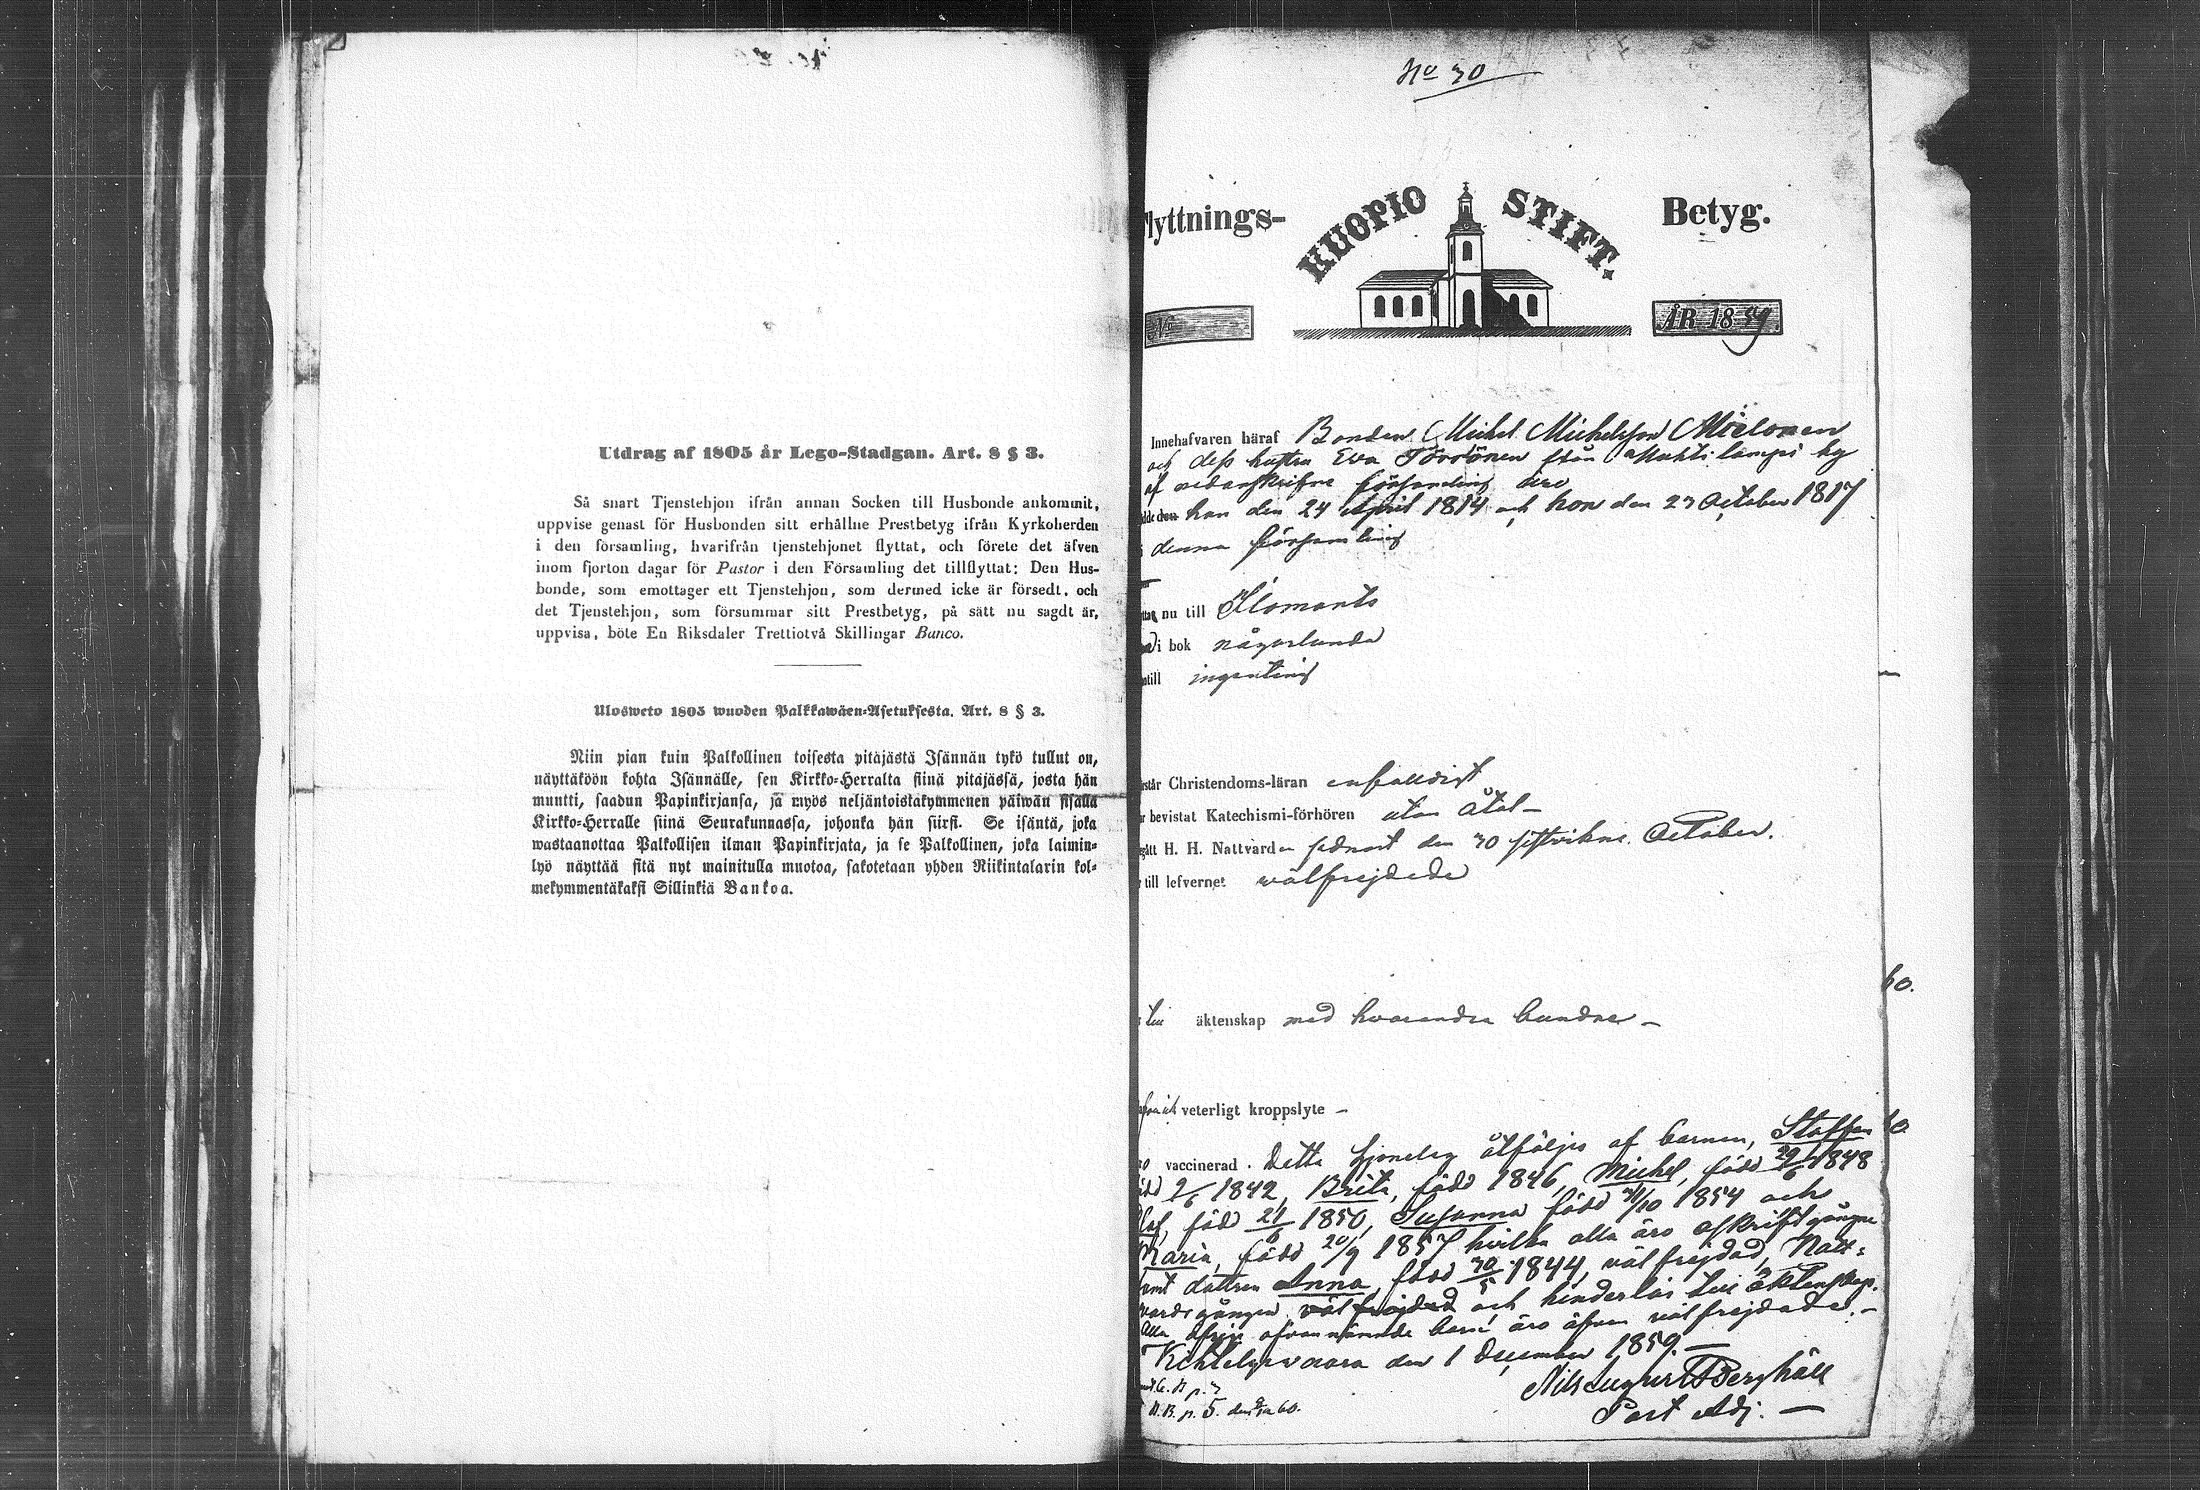 Utdrag af 1805 år Lego-Stadgan. Art. 8 § 3.
Så snart Tjenstehjon ifrån annan Socken till Husbonde ankommit,
uppvise genast för Husbonden sitt erhållne Prestbetyg ifrån Kyrkoherden
i den församling, hvarifrån tjenstehjonet flyttat, och förete det äfven
inom fjorton dagar för Pastor i den Församling det tillflyttat: Den Hus-
bonde, som emottager ett Tjenstehjon, som dermed icke är försedt, och
det Tjenstehjon, som försummar sitt Prestbetyg, på sätt nu sagdt är,
uppvisa, böte En Riksdaler Trettiotvå Skillingar Banco.
Ulosweto 1805 wuoden Palkkawäen-Asetuksesta. Art. 8 § 3.
Niin pian kuin Palkollinen toisesta pitäjästä Isännän tykö tullut on,
näyttäköön kohta Isännälle, sen Kirkko-Herralta siinä pitäjässä, josta hän
muutti, saadun Papinkirjansa, ja myös neljäntoistakymmenen päiwän sisällä
Kirkko-Herralle siinä Seurakunnassa, johonka hän siirsi. Se isäntä, joka
wastaanottaa Palkollisen ilman Papinkirjata, ja se Palkollinen, joka laimin-
lyö näyttää sitä nyt mainitulla muotoa, sakotetaan yhden Riikintalarin kol-
mekymmentäkaksi Sillinkiä Bankoa.
No 30
lyttnings- KUOPIO STIFT. Betyg.
No ÅR 1859
Innehafvaren häraf Bonden Michel Michelsson
och dess hustru Eva Törrönen från Muhtilampi by
af nedanskrifne församling äro
han den 24 April 1814 och hon den 23 October 1817
denna församling
nu till Ilomants
i bok någorlunda
till ingenting
står Christendoms-läran enfaldigt
bevistat Katechismi-förhören utan åtal —
gått H. H. Nattvarden sednast den 30 sistvikne October.
till lefvernet välfrejdade
60.
till äktenskap med hvarandra bundne —
veterligt kroppslyte —
vaccinerad. Detta åtföljes af barnen, Staffan
2/6 1842, Brita, född 1846, Michel, född 29/6 1848
född 21/6 1850, Susanna född 1854 och
Maria, född 20/9 1857 hvilka alla äro afskriftgångne
samt dottren Anna, född 30/5 1844, väl frejdad, Natt-
vardsgången och hinderlös till äktenskap.
Alla ofvannämnde barn äro äfven välfrejdade. —
Kihtelysvaara den 1 December 1859. —
Nils August Berghäll
Past Adj. —
p. 3
p. 5. den 60.